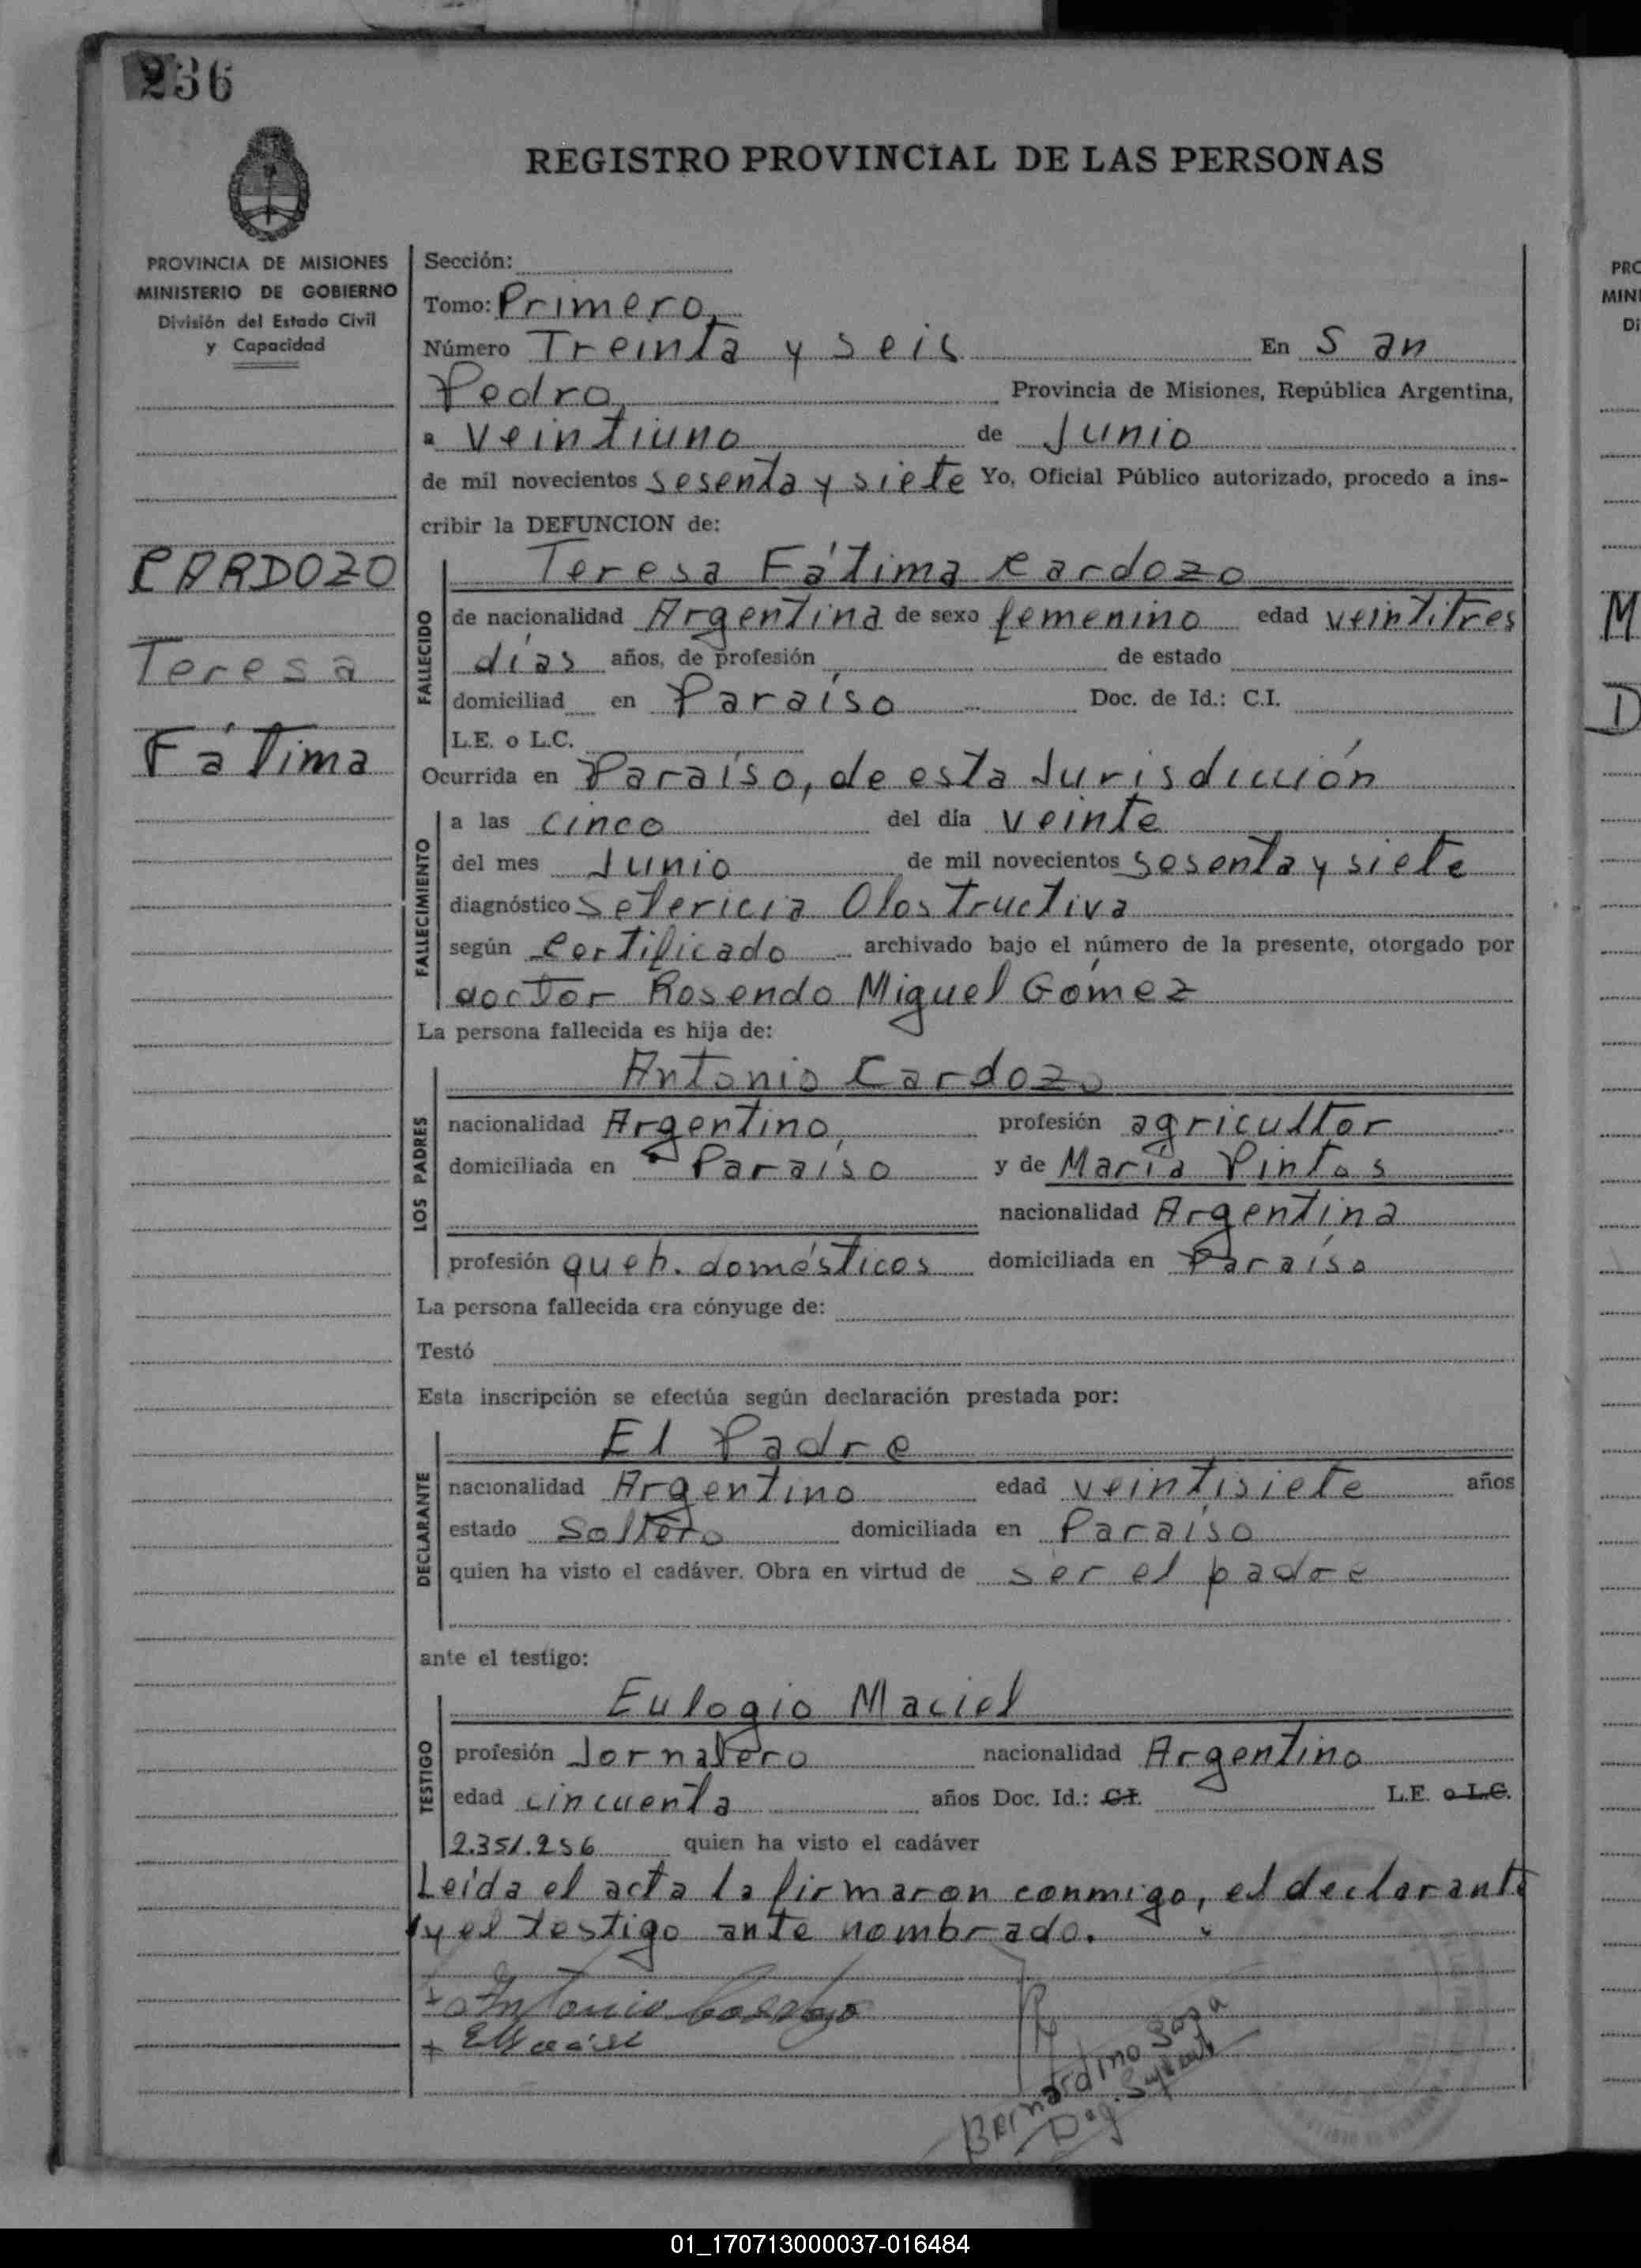 236
REGISTRO PROVINCIAL DE LAS PERSONAS
PROVINCIA DE MISIONES
MINISTERIO DE GOBIERNO
División del Estado Civil
y Capacidad
CARDOZO
Teresa
Fátima
Sección:
Tomo: Primero,
Número Treinta y seis En San
Pedro, Provincia de Misiones, República Argentina,
a veintiuno de Junio
de mil novecientos sesenta y siete Yo, Oficial Público autorizado, procedo a ins-
cribir la DEFUNCION de:
FALLECIDO
Teresa Fátima Cardozo
de nacionalidad Argentina de sexo femenino edad veintitres
días años, de profesión de estado
domiciliad en Paraíso Doc. de Id.: C.I.
L.E. o L.C.
Ocurrida en Paraíso, de esta Jurisdicción
FALLECIMIENTO
a las cinco del día veinte
del mes Junio de mil novecientos sesenta y siete
diagnóstico Setericia Olostructiva
según Certificado archivado bajo el número de la presente, otorgado por
doctor Rosendo Miguel Gómez
La persona fallecida es hija de:
LOS PADRES
Antonio Cardozo
nacionalidad Argentino, profesión agricultor
domiciliada en Paraíso y de María Pintos
nacionalidad Argentina
profesión queh. domésticos domiciliada en Paraíso
La persona fallecida era cónyuge de:
Testó
Esta inscripción se efectúa según declaración prestada por:
DECLARANTE
El Padre
nacionalidad Argentino edad veintisiete años
estado Soltero domiciliada en Paraíso
quien ha visto el cadáver. Obra en virtud de ser el padre
ante el testigo:
TESTIGO
Eulogio Maciel
profesión Jornalero nacionalidad Argentino
edad cincuenta años Doc. Id.: C.I. L.E. o L.C.
2.351.256 quien ha visto el cadáver
Leída el acta la firmaron conmigo, el declarante
y el testigo ante nombrado.
Antonio Cardozo
Bernardino Sosa
01_170713000037-016484